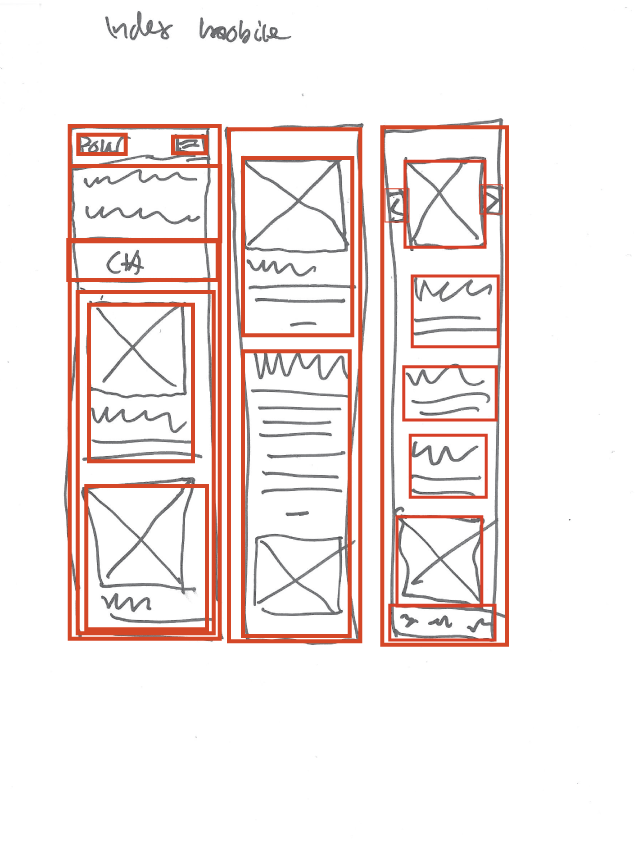 Index mobile
Polar
CTA